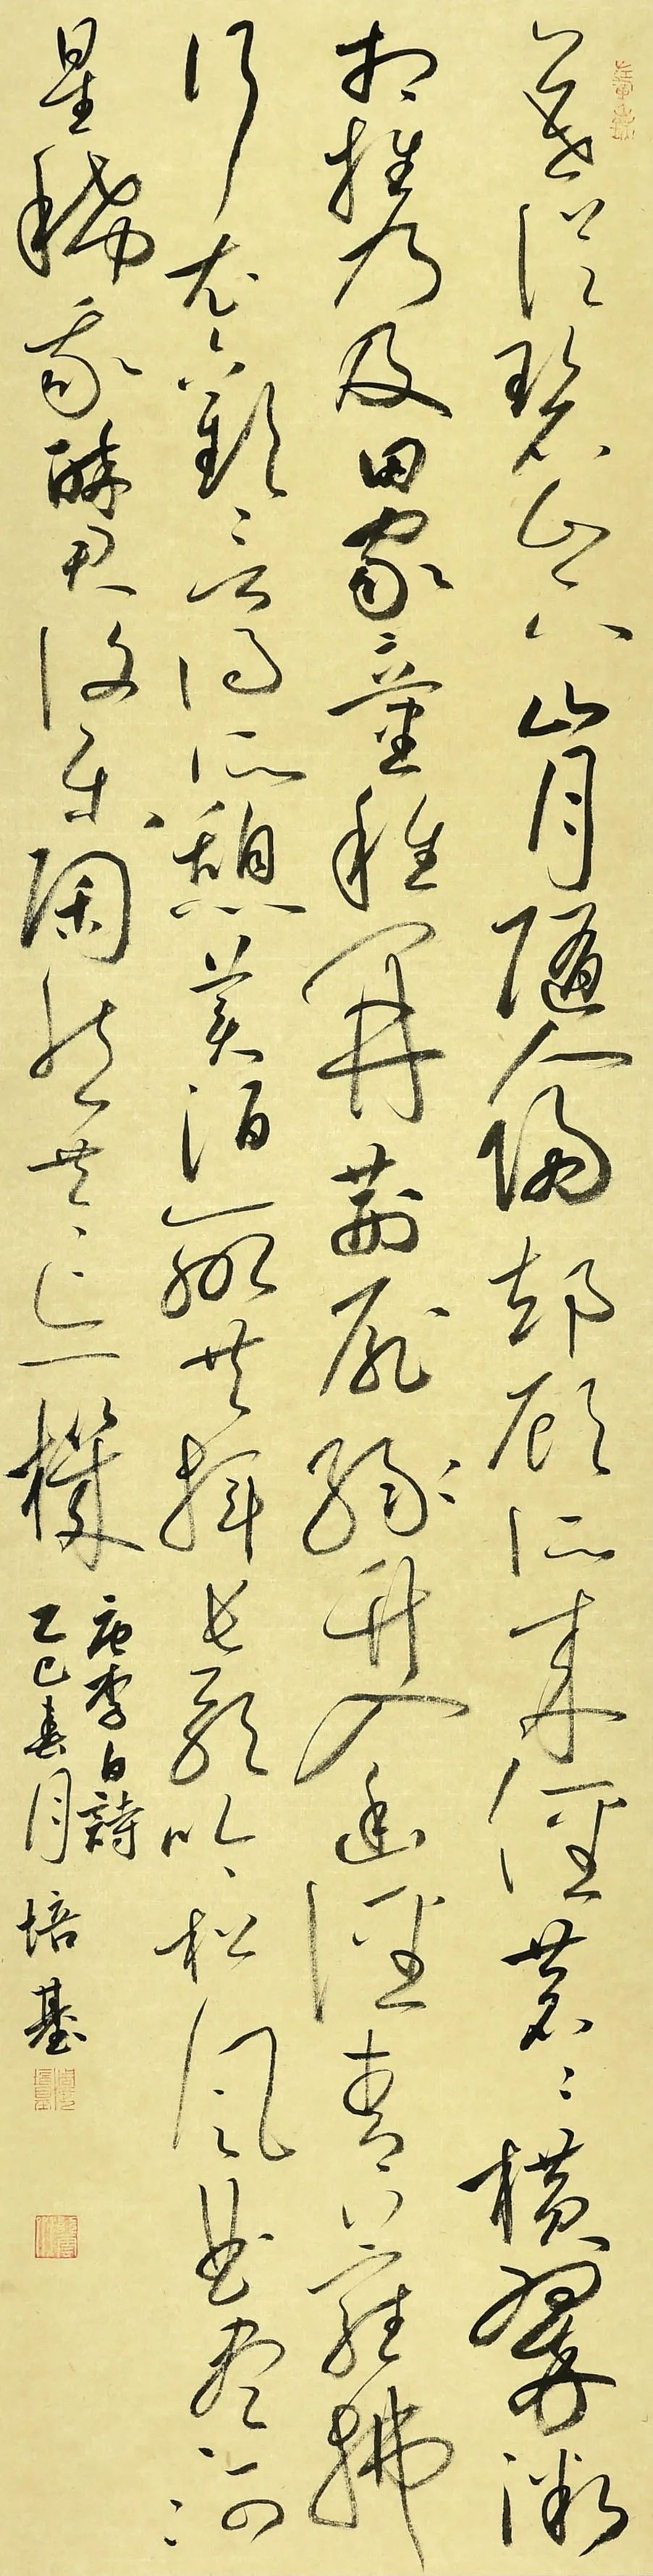 暮從碧山下山月隨人歸卻顧所來徑蒼々橫翠微
相攜及田家童稚開荊扉綠竹入幽徑青蘿拂
行衣歡言得所憩美酒聊共揮長歌吟松風曲盡河
星稀我醉君復樂陶然共忘機
唐李白詩
乙巳春月 培基